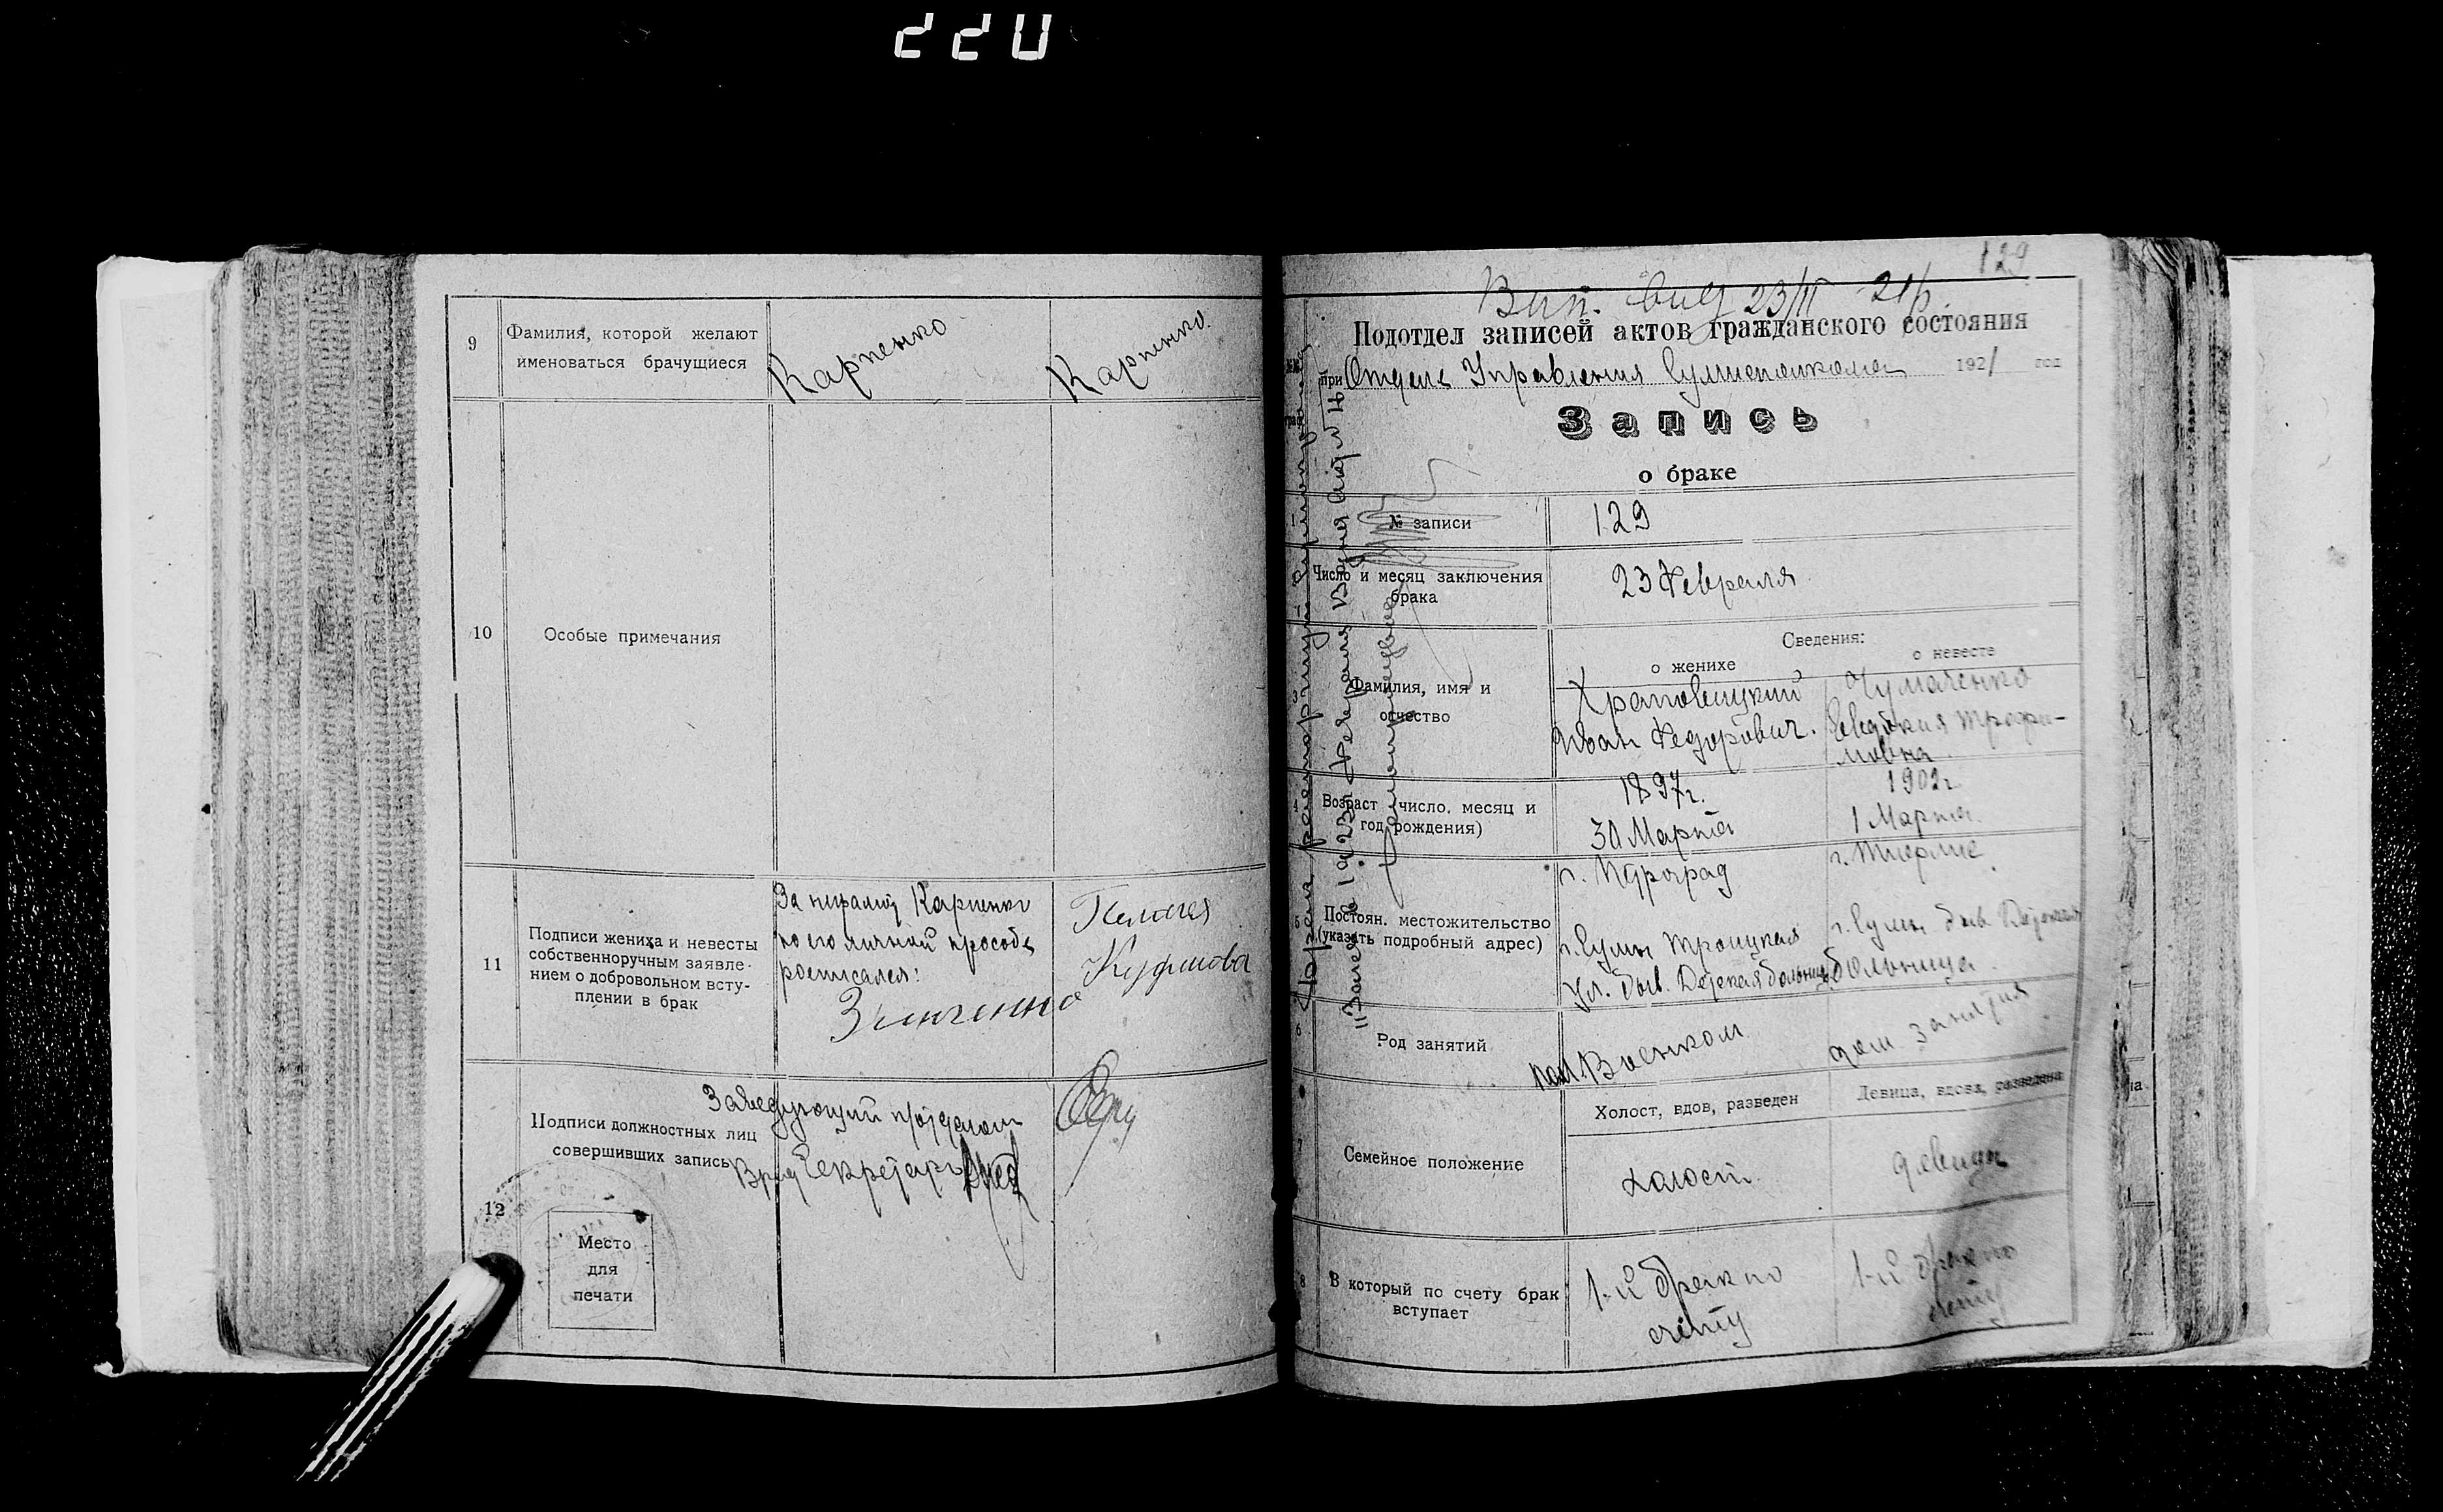 220
9
Фамилия, которой желают
именоваться брачущиеся
Карпенко
Карпенко
10
Особые примечания
11
Подписи жениха и невесты
собственноручным заявле-
нием о добровольном всту-
плении в брак
За неграмот Карпенко
по его личной просьбе
росписался:
Зинченко
Пелагея
Кудинова
12
Подписи должностных лиц
совершивших запись
Заведующий п/отделом
Врид Секретарь
Место
для
печати
129
Вип. 23/II 21р.
Подотдел записей актов гражданского состояния
при Отделе Управления Сумисполкома 1921 год
Запись
о браке
1
№ записи
129
2
Число и месяц заключения
брака
23 Февраля
3
Фамилия, имя и
отчество
Сведения:
о женихе
о невесте
Храповицкий
Иван Федорович.
Чумаченко
Евдокия Трофи-
мовна
4
Возраст (число, месяц и
год рождения)
1897г.
30 Марта
1902г.
1 Марта
5
Постоян. местожительство
(указать подробный адрес)
г. Петроград
г. Сумы Троицкая
Ул. быв. Детская больница
г.
г. Сумы быв. Детская
больница
6
Род занятий
пом. Военком
дом занятия
7
Семейное положение
Холост, вдов, разведен
Девица, вдова, разведена
холост
девица
8
В который по счету брак
вступает
1-й брак по
счету
1-й брак по
счету